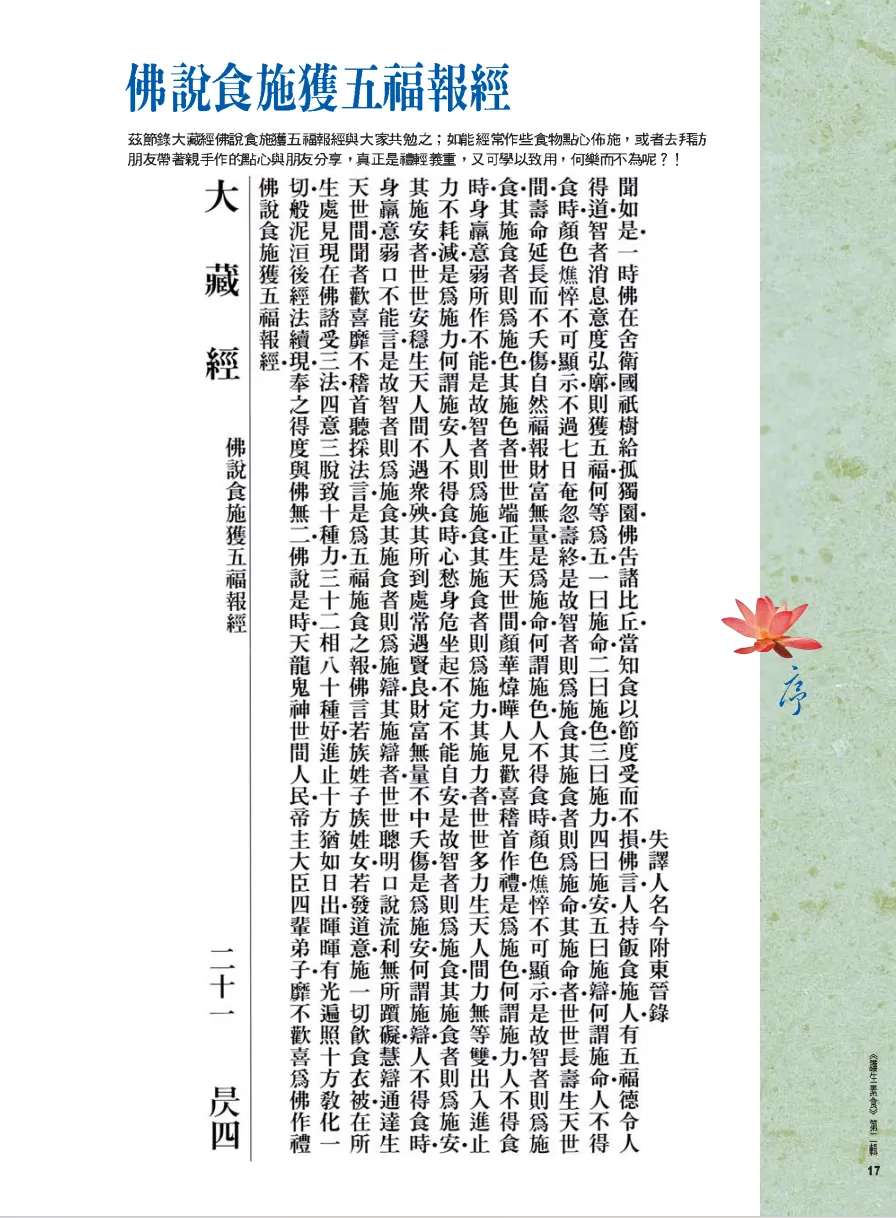 佛說食施獲五福報經
茲節錄大藏經佛說食施獲五福報經與大家共勉之；如能經常作些食物點心佈施，或者去拜訪
朋友帶著親手作的點心與朋友分享，真正是禮輕義重，又可學以致用，何樂而不為呢？！
失譯人名今附東晉錄
聞如是．一時佛在舍衛國祇樹給孤獨園．佛告諸比丘．當知食以節度受而不損．佛言．人持飯食施人．有五福德令人
得道．智者消息意度弘廓．則獲五福．何等為五．一曰施命．二曰施色．三曰施力．四曰施安．五曰施辯．何謂施命．人不得
食時．顏色燋悴不可顯示．不過七日奄忽壽終．是故智者則為施食．其施食者則為施命．其施命者．世世長壽生天世
間．壽命延長而不夭傷．自然福報財富無量．是為施命．何謂施色．人不得食時．顏色燋悴不可顯示．是故智者則為施
食．其施食者則為施色．其施色者．世世端正生天世間．顏華煒曄．人見歡喜稽首作禮．是為施色．何謂施力．人不得食
時．身羸意弱所作不能．是故智者則為施食．其施食者則為施力．其施力者．世世多力生天人間．力無等雙．出入進止
力不耗減．是為施力．何謂施安．人不得食時．心愁身危坐起不定不能自安．是故智者則為施食．其施食者則為施安．
其施安者．世世安穩生天人間．不遇眾殃．其所到處常遇賢良．財富無量不中夭傷．是為施安．何謂施辯．人不得食時．
身羸意弱口不能言．是故智者則為施食．其施食者則為施辯．其施辯者．世世聰明口說流利．無所躓礙．慧辯通達生
天世間．聞者歡喜靡不稽首聽採法言．是為五福施食之報．佛言．若族姓子族姓女．若發道意．施一切飲食衣被．在所
生處見現在佛諮受三法．四意三脫致十種力．三十二相八十種好．進止十方猶如日出．暉暉有光遍照十方教化一
切．般泥洹後經法續現．奉之得度與佛無二．佛說是時．天龍鬼神世間人民．帝主大臣四輩弟子．靡不歡喜為佛作禮
佛說食施獲五福報經．
大藏經　佛說食施獲五福報經　二十一　昃四
序
《護生素食》第二輯
17